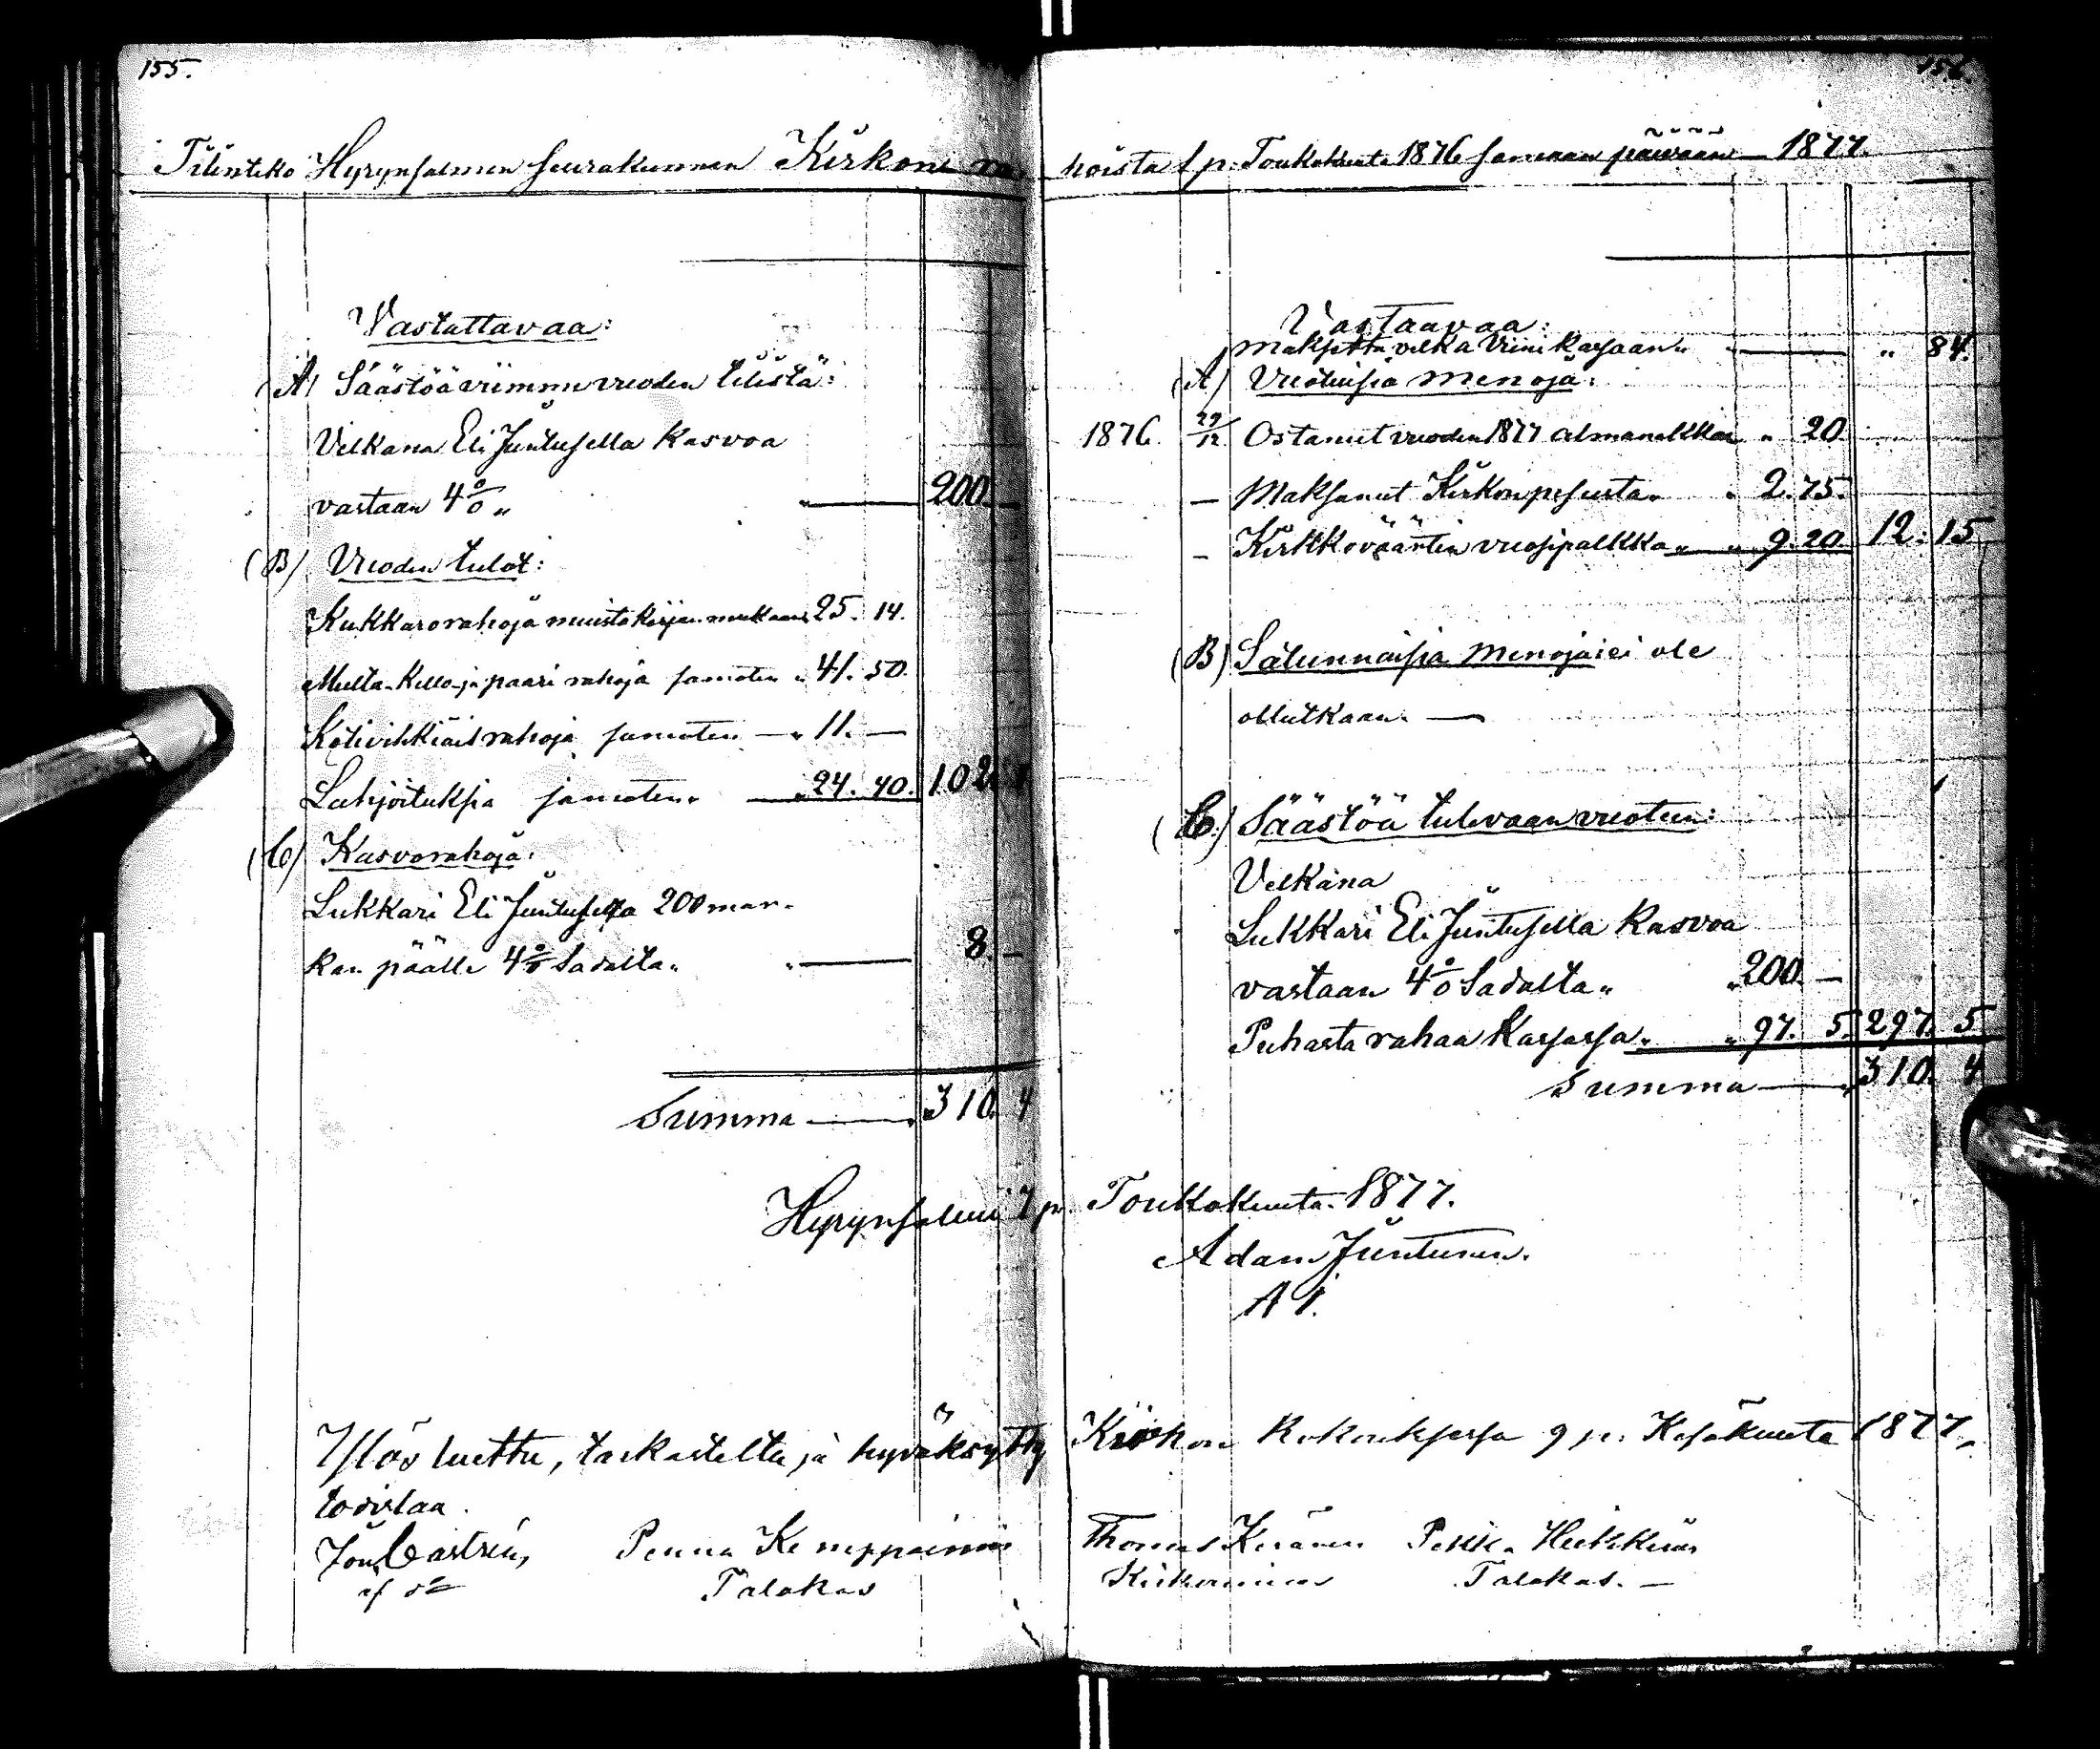 155.
Tilinteko Hyrynsalmen seurakunnan Kirkon ra
Vastattavaa:
(A) Säästöä viimme vuoden tilistä:
Velkana Eli Juntusella Kasvoa
vastaan 4 % „ „ — 200. —
(B) Vuoden tulot:
Kukkarorahoja muistokirjan mukaan 25. 14.
Multa-Kello-ja paari rahoja samoten „ 41. 50.
Kotivihkiäis rahoja samoten — „ 11. —
Lahjoituksia samoten „ — „ 24. 40. 102. 4
(C) Kasvorahoja:
Lukkari Eli Juntuselta 200 mar-
kan päälle 4 % Sadalta „ „ — 8. —
Summa — 310. 4
Hyrynsalmi 7 p.
Ylös luettu, tarkastettu ja hyväksytty
todistaa.
Joh. Castrén, Penna Kemppainen
Talokas
156.
hoista 1 p: Toukokuuta 1876 samaan päivään — 1877.
Vastaavaa:
Maksettu velka Viini Kassaan „ — „ 84.
(A) Vuotuisia menoja:
1876. 29/12 Ostanut vuoden 1877 almanakkaa „ 20.
— Maksanut Kirkon pesusta „ „ 2. 75.
— Kirkkoväärtin vuosipalkka „ „ 9. 20. 12. 15
(B) Satunnaisia menoja: ei ole
ollutkaan. —
(C.) Säästöä tulevaan vuoteen:
Velkana
Lukkari Eli Juntusella Kasvoa
vastaan 4 % Sadalta „ „ 200. —
Puhasta rahaa Kassassa „ „ 97. 5. 297. 5
Summa — „ 310. 4
Toukokuuta 1877.
Adam Juntunen.
A J.
Kirkon Kokouksessa 9 p: Kesäkuuta 1877,
Thomas Keränen Pekka Heikkinen
Talokas. —